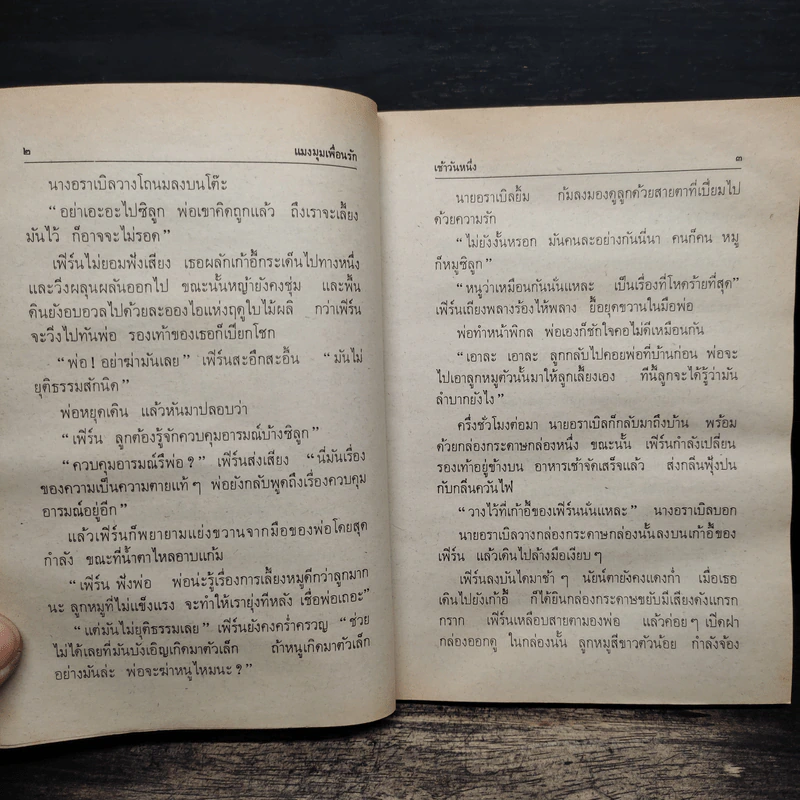 ๒
แมงมุมเพื่อนรัก
นางอราเบิลวางโถนมลงบนโต๊ะ
“ อย่าเอะอะไปซิลูก พ่อเขาคิดถูกแล้ว ถึงเราจะเลี้ยง
มันไว้ ก็อาจจะไม่รอด”
เฟิร์นไม่ยอมฟังเสียง เธอผลักเก้าอี้กระเด็นไปทางหนึ่ง
และวิ่งผลุนผลันออกไป ขณะนั้นหญ้ายังคงชุ่ม และพื้น
ดินยังอบอวลไปด้วยละอองไอแห่งฤดูใบไม้ผลิ กว่าเฟิร์น
จะวิ่งไปทันพ่อ รองเท้าของเธอก็เปียกโชก
“พ่อ! อย่าฆ่ามันเลย” เฟิร์นสะอึกสะอื้น “มันไม่
ยุติธรรมสักนิด”
พ่อหยุดเดิน แล้วหันมาปลอบว่า
“เฟิร์น ลูกต้องรู้จักควบคุมอารมณ์บ้างซิลูก”
“ควบคุมอารมณ์รึพ่อ ?” เฟิร์นส่งเสียง “นี่มันเรื่อง
ของความเป็นความตายแท้ ๆ พ่อยังกลับพูดถึงเรื่องควบคุม
อารมณ์อยู่อีก”
แล้วเฟิร์นก็พยายามแย่งขวานจากมือของพ่อโดยสุด
กำลัง ขณะที่น้ำตาไหลอาบแก้ม
“เฟิร์น ฟังพ่อ พ่อน่ะรู้เรื่องการเลี้ยงหมูดีกว่าลูกมาก
นะ ลูกหมูที่ไม่แข็งแรง จะทำให้เรายุ่งทีหลัง เชื่อพ่อเถอะ”
“แต่มันไม่ยุติธรรมเลย” เฟิร์นยังคงคร่ำครวญ “ช่วย
ไม่ได้เลยที่มันบังเอิญเกิดมาตัวเล็ก ถ้าหนูเกิดมาตัวเล็ก
อย่างมันล่ะ พ่อจะฆ่าหนูไหมนะ ?”
เช้าวันหนึ่ง
๓
นายอราเบิลยิ้ม ก้มลงมองดูลูกด้วยสายตาที่เปี่ยมไป
ด้วยความรัก
“ไม่ยังงั้นหรอก มันคนละอย่างกันนี่นา คนก็คน หมู
ก็หมูซิลูก”
“หนูว่าเหมือนกันนั่นแหละ เป็นเรื่องที่โหดร้ายที่สุด”
เฟิร์นเถียงพลางร้องไห้พลาง ยื้อยุดขวานในมือพ่อ
พ่อทำหน้าพิกล พ่อเองก็ชักใจคอไม่ดีเหมือนกัน
“เอาละ เอาละ ลูกกลับไปคอยพ่อที่บ้านก่อน พ่อจะ
ไปเอาลูกหมูตัวนั้นมาให้ลูกเลี้ยงเอง ทีนี้ลูกจะได้รู้ว่ามัน
ลำบากยังไง”
ครึ่งชั่วโมงต่อมา นายอราเบิลก็กลับมาถึงบ้าน พร้อม
ด้วยกล่องกระดาษกล่องหนึ่ง ขณะนั้น เฟิร์นกำลังเปลี่ยน
รองเท้าอยู่ข้างบน อาหารเช้าจัดเสร็จแล้ว ส่งกลิ่นฟุ้งปน
กับกลิ่นควันไฟ
“วางไว้ที่เก้าอี้ของเฟิร์นนั่นแหละ” นางอราเบิลบอก
นายอราเบิลวางกล่องกระดาษกล่องนั้นลงบนเก้าอี้ของ
เฟิร์น แล้วเดินไปล้างมือเงียบ ๆ
เฟิร์นลงบันไดมาช้า ๆ นัยน์ตายังคงแดงก่ำ เมื่อเธอ
เดินไปยังเก้าอี้ ก็ได้ยินกล่องกระดาษขยับมีเสียงดังแกรก
กราก เฟิร์นเหลือบสายตามองพ่อ แล้วค่อย ๆ เปิดฝา
กล่องออกดู ในกล่องนั้น ลูกหมูสีขาวตัวน้อย กำลังจ้อง